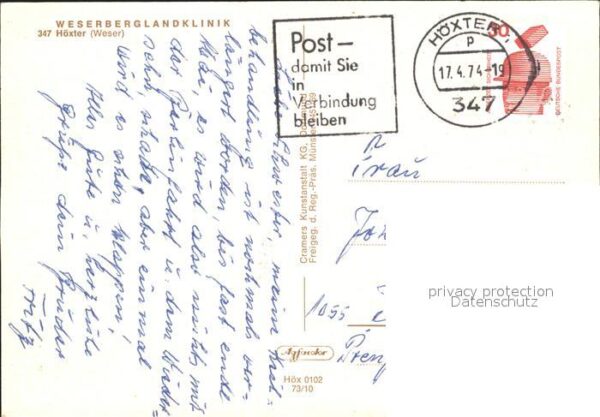 WESERBERGLANDKLINIK
347 Höxter (Weser)
Post –
damit Sie
in
Verbindung
bleiben
HÖXTER 1
p
17.4.74-19
347
30
DEUTSCHE BUNDESPOST
Liebe Schwester, meine Kur-
behandlung ist nochmals ver-
längert worden, bis fast ende
Mai es wird also nichts mit
der Berlinfahrt u. dem Wieder-
sehn, schade, aber einmal
wird es schon klappen!
Alles Gute u. herzliche
Grüße dein Bruder
Fritz
Cramers Kunstanstalt KG, Dortmund
Freigeg. d. Reg.-Präs. Münster
Frau
1055
Höx 0102
73/10
privacy protection
Datenschutz